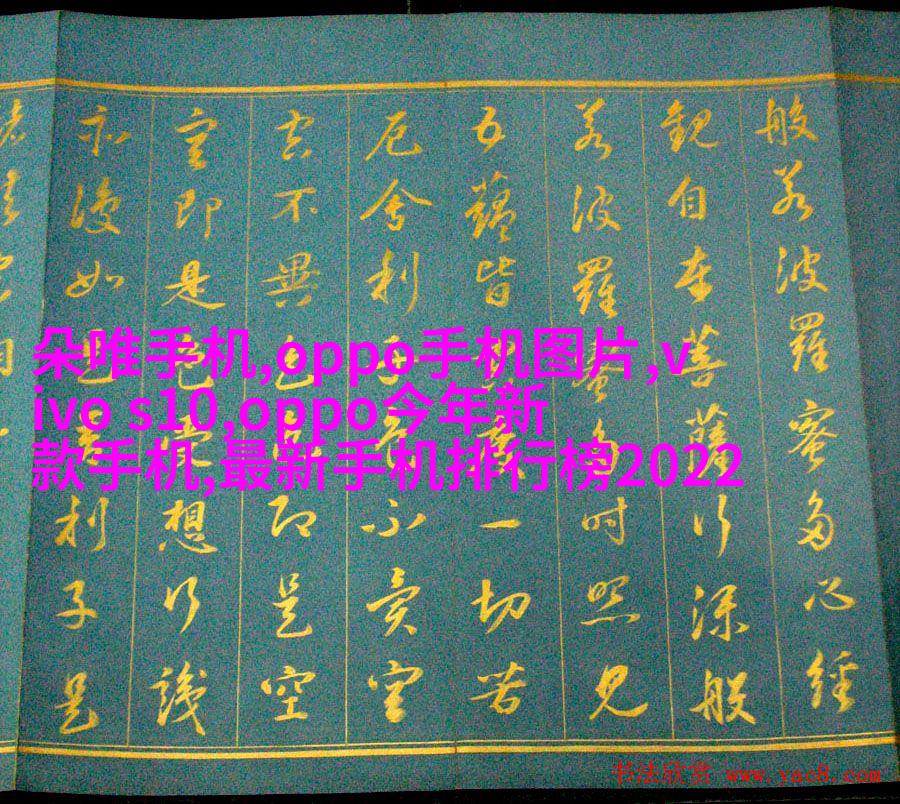 般若波羅蜜多心經
觀自在菩薩行深般
若波羅蜜多時照見
五蘊皆空度一切苦
厄舍利子色不異空
空不異色色即是空
空即是色受想行識
亦復如是舍利子是
朵唯手机,oppo手机图片,v
ivo s10,oppo今年新
款手机,最新手机排行榜2022
书法欣赏 www.yac8.com